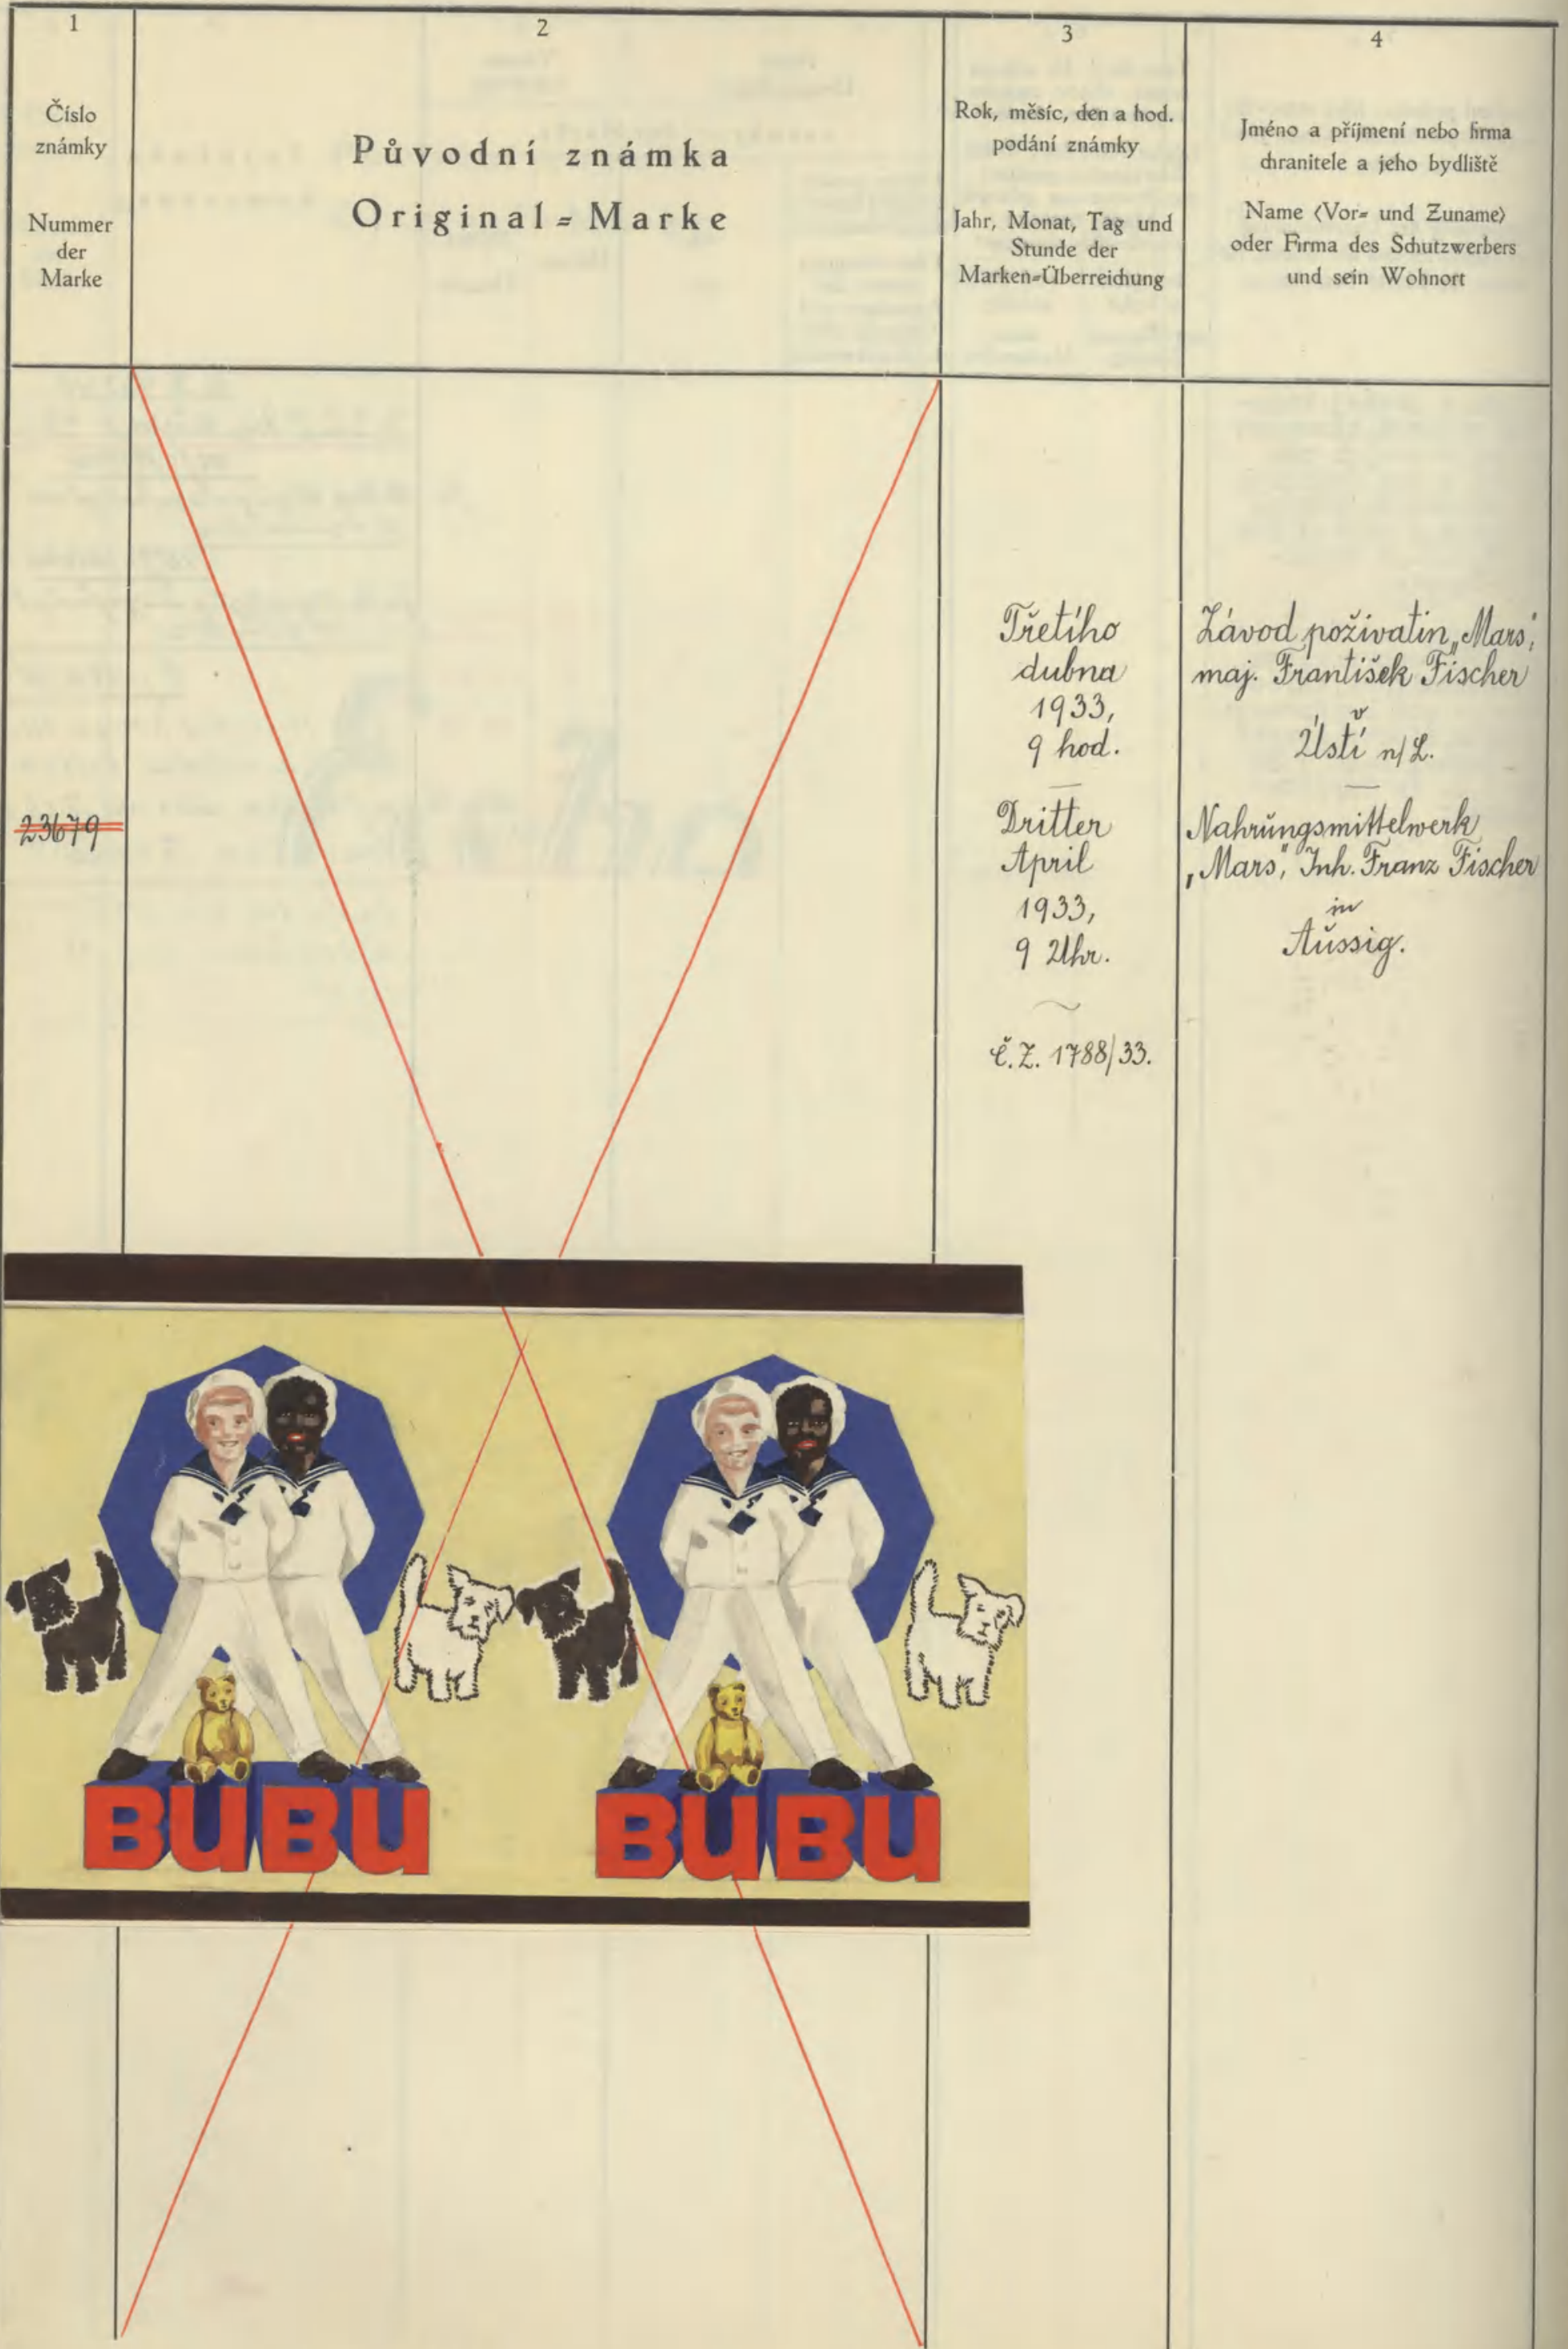 1
Číslo
známky
Nummer
der
Marke
2
Původní známka
Original=Marke
3
Rok, měsíc, den a hod.
podání známky
Jahr, Monat, Tag und
Stunde der
Marken=Überreichung
4
Jméno a příjmení nebo firma
chranitele a jeho bydliště
Name (Vor= und Zuname)
oder Firma des Schutzwerbers
und sein Wohnort
23679
Třetího
dubna
1933,
9 hod.
Dritter
April
1933,
9 Uhr.
Č.Z. 1788/33.
Závod poživatin „Mars",
maj. František Fischer
v
Ústí n/L.
Nahrŭngsmittelwerk
„Mars", Inh. Franz Fischer
in
Aŭssig.
BUBU
BUBU